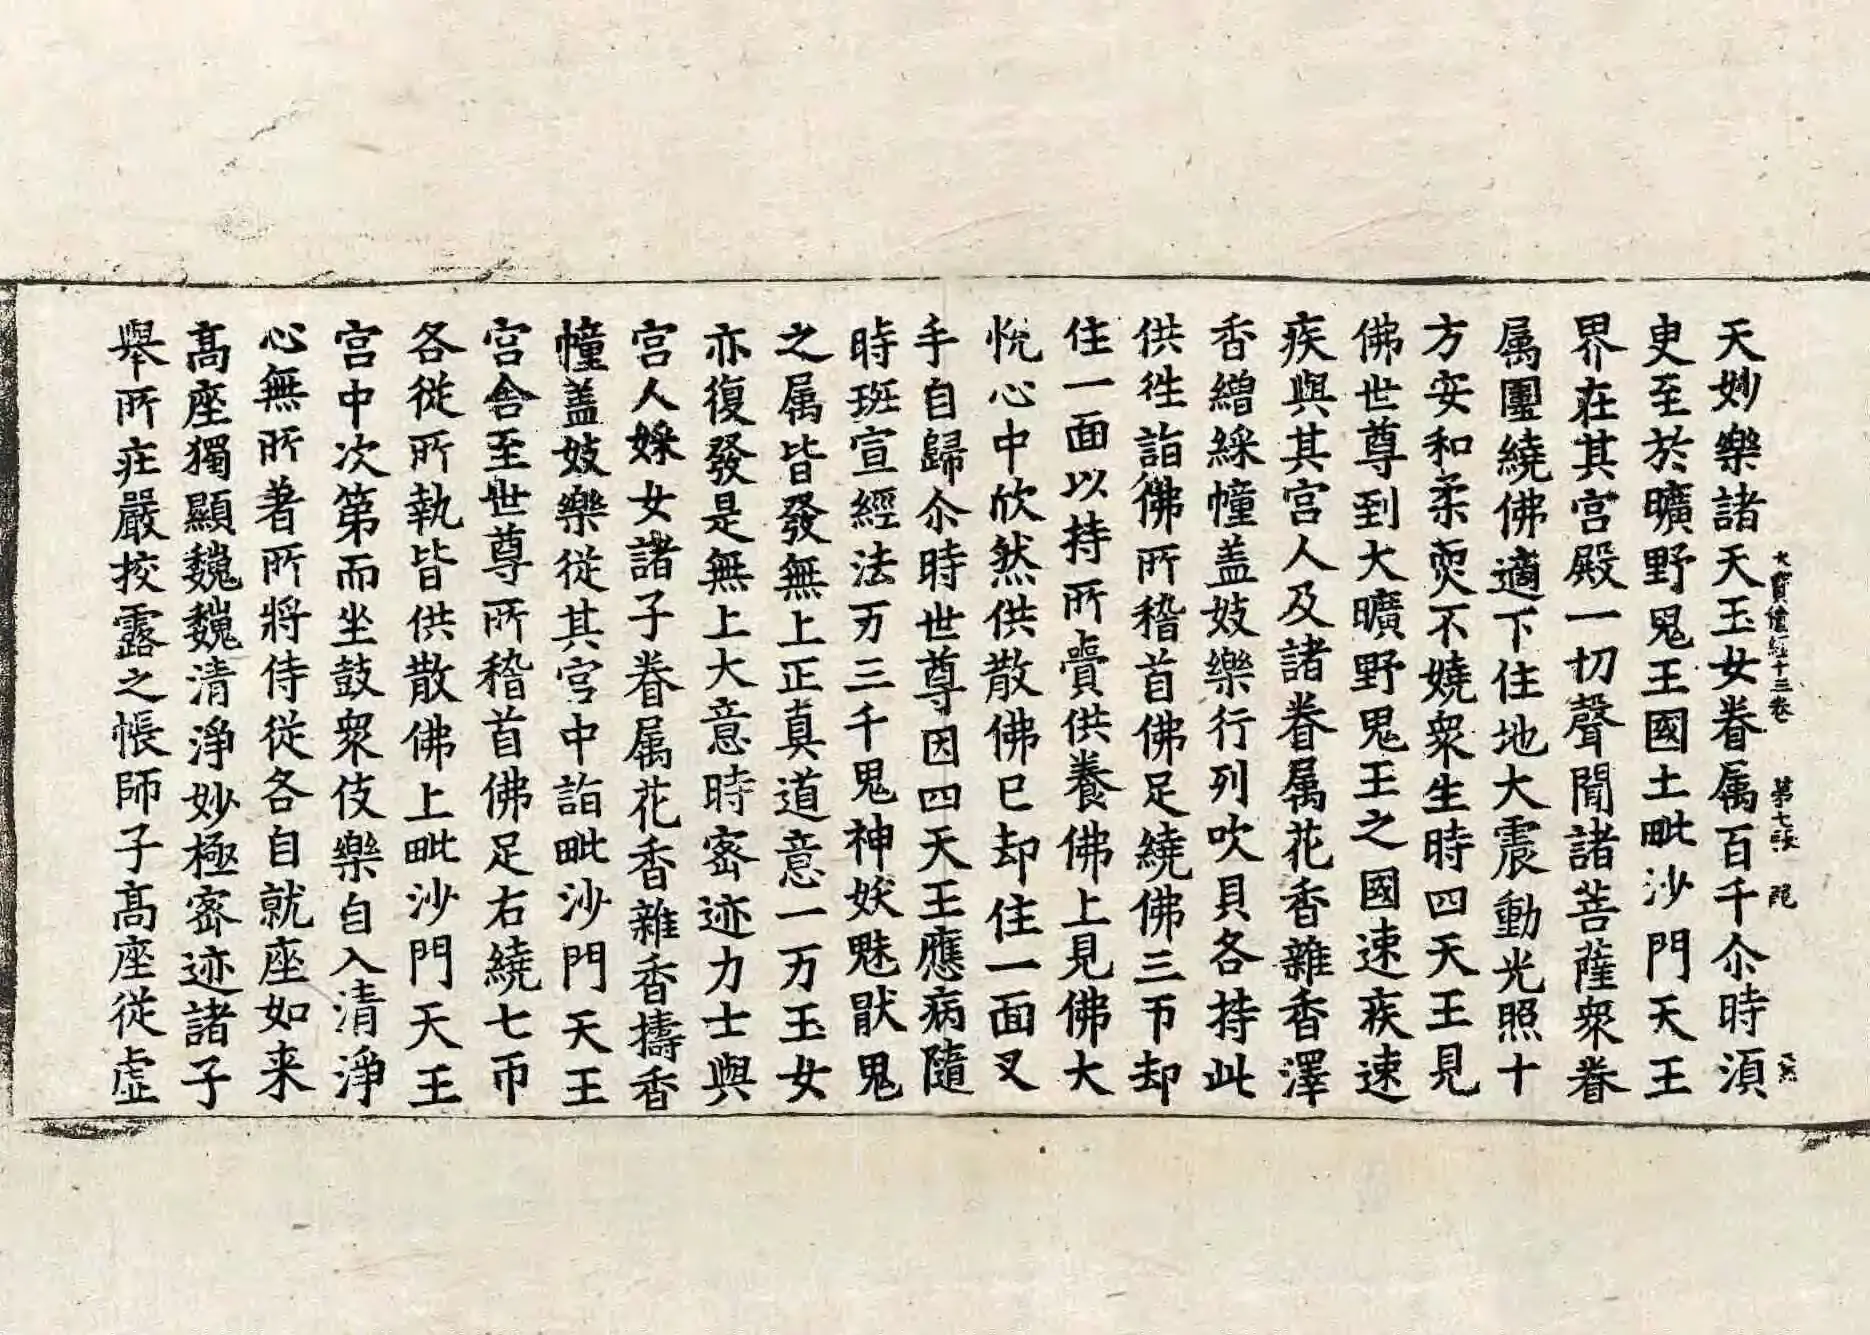 大寶積經十三卷 第七張 龍
天妙樂諸天玉女眷属百千尒時湏
㬰至於曠野鬼王國土毗沙門天王
界在其宫殿一切聲聞諸菩薩衆眷
属圍繞佛適下住地大震動光照十
方安和柔耎不嬈衆生時四天王見
佛世尊到大曠野鬼王之國速疾速
疾與其宫人及諸眷属花香雜香澤
香繒綵幢盖妓樂行列吹貝各持此
供往詣佛所稽首佛足繞佛三帀却
住一面以持所賷供養佛上見佛大
恱心中欣然供散佛已却住一面叉
手自歸尒時世尊因四天王應病隨
時班宣經法万三千鬼神妖魅猒鬼
之属皆發無上正真道意一万玉女
亦復發是無上大意時宻迹力士與
宫人婇女諸子眷属花香雜香擣香
幢盖妓樂従其宫中詣毗沙門天王
宫舍至世尊所稽首佛足右繞七帀
各従所執皆供散佛上毗沙門天王
宫中次第而坐鼓衆伎樂自入清淨
心無所著所將侍従各自就座如来
髙座獨顯巍巍清淨妙極宻迹諸子
舉所庄嚴挍露之帳師子髙座従虚